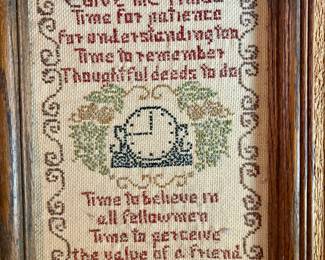 Give me
Time for patience
for understanding too
Time to remember
Thoughtful deeds to do
Time to believe in
all fellowmen
Time to perceive
the value of a friend